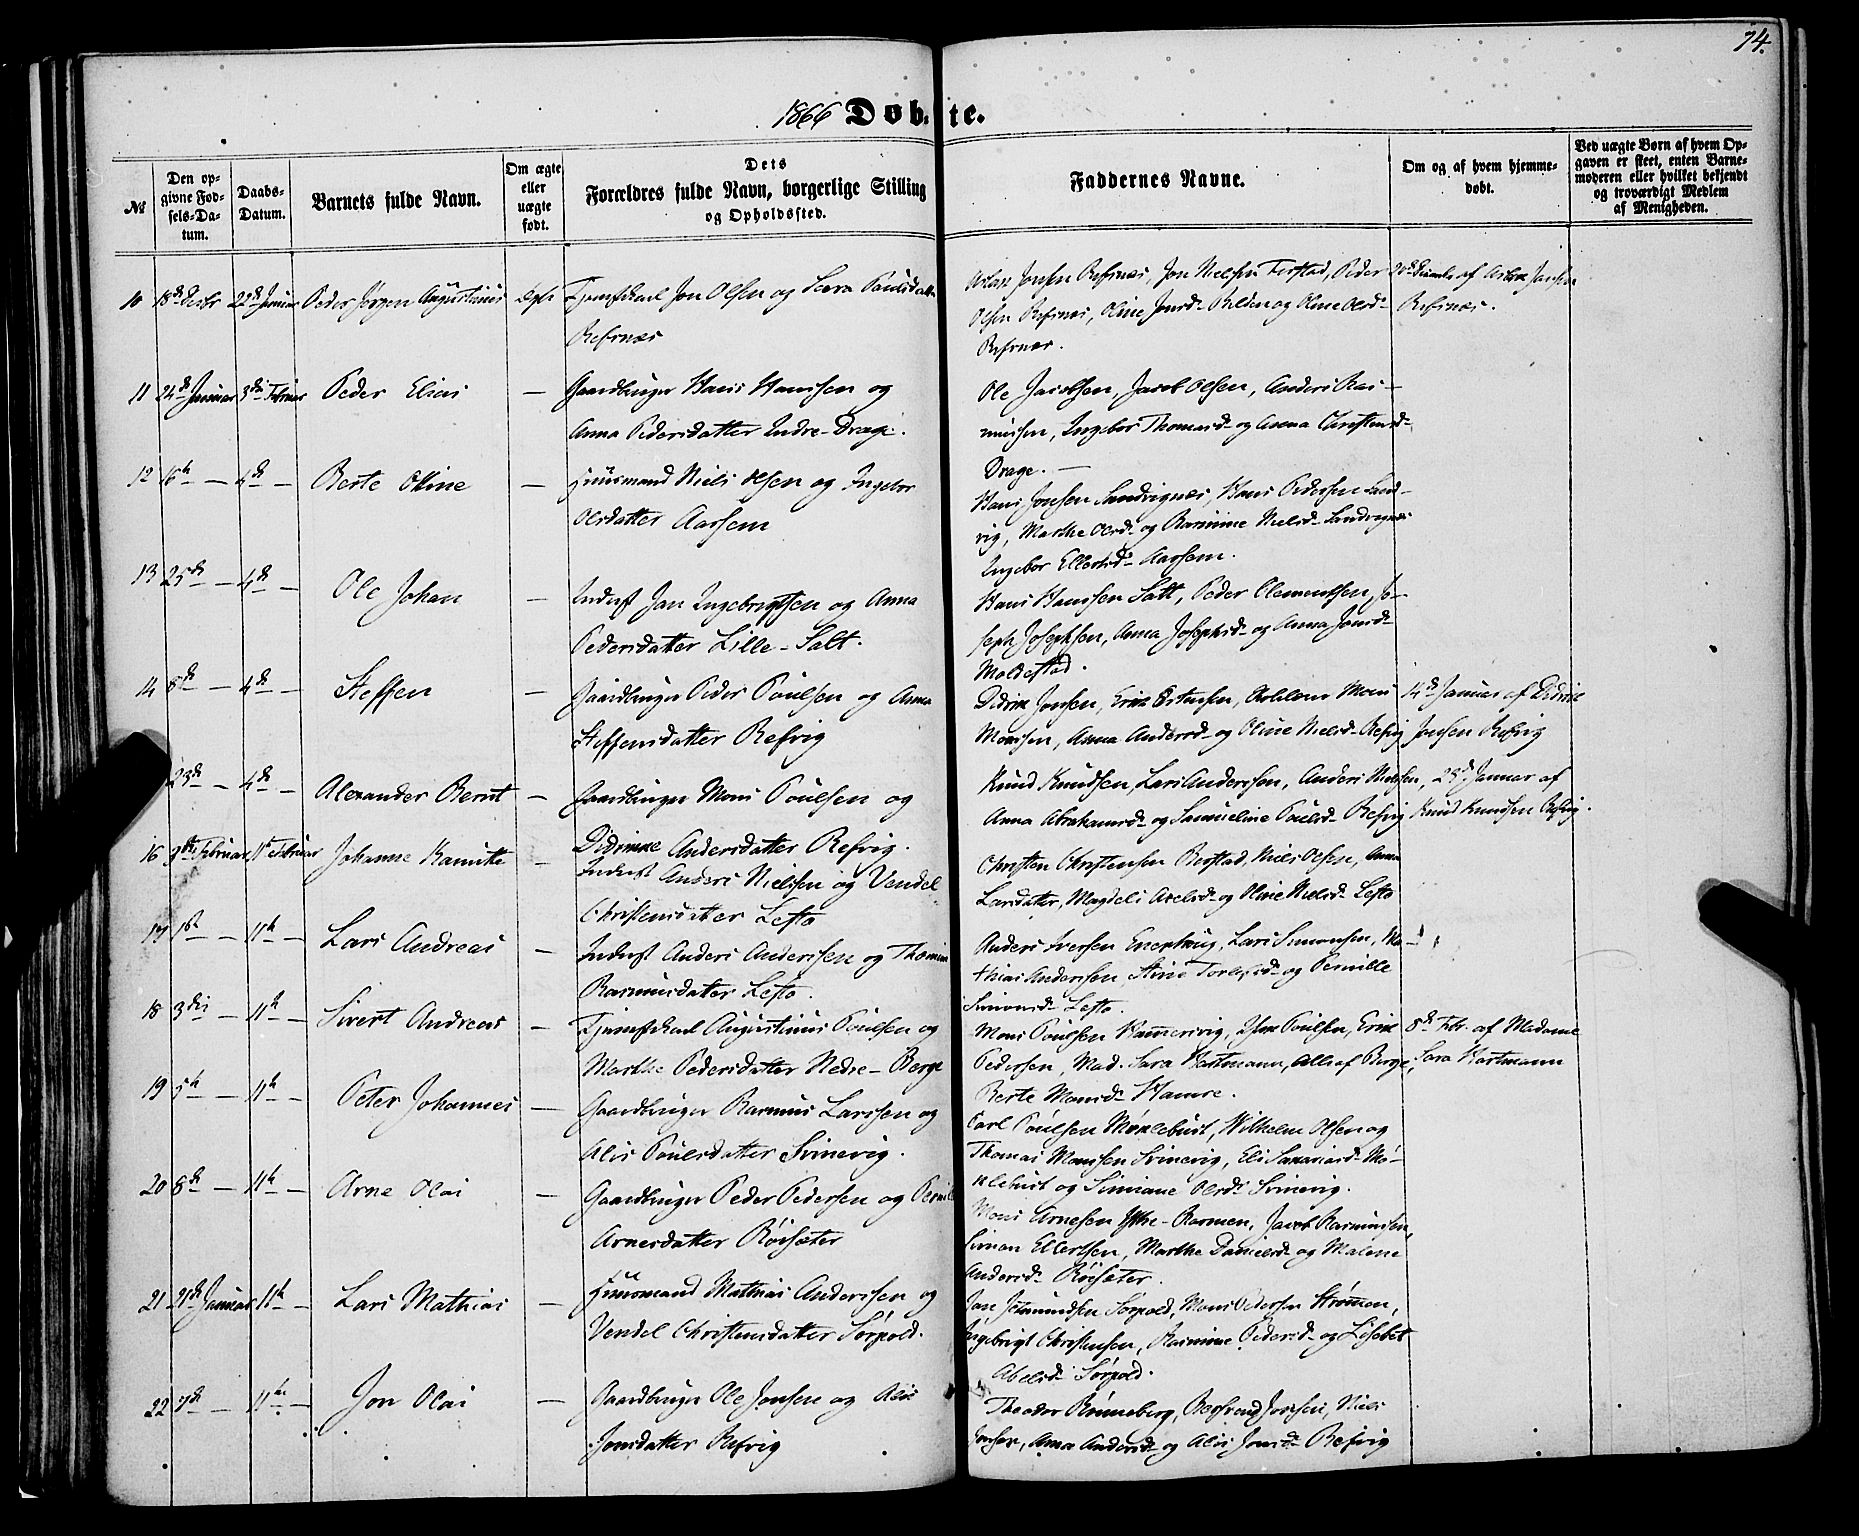 74.
1866 Døbte.
№
Den opgivne Fødsels-Datum.
Daabs-Datum.
Barnets fulde Navn.
Om ægte eller uægte født.
Dets Forældres fulde Navn, borgerlige Stilling og Opholdssted.
Faddernes Navne.
Om og af hvem hjemmedøbt.
Ved uægte Børn af hvem Opgaven er skeet, enten Barnemoderen eller hvilket bekjendt og troværdigt Medlem af Menigheden.
10 18de Decbr 22de Januar Peder Jørgen Augustinus Ægte Jon Olsen og
Refsnæs
Jonsen Refsnæs, Jon Nielsen Peder
Olsen Refsnæs, Oline Jonsd. og Oline Olsd.
Refsnæs.
af Jonsen
Refsnæs.
11 24de Januar 3die Februar Peder Elias — Gaardbruger Hans Hansen og
Anna Pedersdatter Indre-Drage.
Ole Jacobsen, Jacob Olsen, Anders Ras-
mussen, Ingebor Thomasd. og Anna Christensd.
Drage. —
12 16de — 4de — Berte Oline — Huusmand Niels Olsen og Ingebor
Olsdatter Aarsem
Hans Jonsen Sandvignes, Hans Pedersen Sand-
vig, Marthe Olsd. og Rasmine Nielsd. Sandvignes
Ingebor Ellertsd. Aarsem.
13 25de — 4de — Ole Johan — Inderst Jan Ingebrigtsen og Anna
Pedersdatter Lille-Salt.
Hans Hansen Salt, Peder Clementsen, Jo-
seph Josephsen, Anna Josephsd. og Anna Jonsd.
Moldestad.
14 8de — 4de — Steffen — Gaardbruger Peder Poulsen og Anna
Steffensdatter Refvig
Didrik Jonsen, Erik Mons
Monsen, Anna Andersd. og Oline Nielsd. Refvig
14de Januar af Didrik
Jonsen Refvig
23de — 4de — Alexander Bernt — Gaardbruger Mons Poulsen og
Didrikke Andersdatter Refvig.
Knud Knudsen, Lars Andersen, Anders Nielsen,
Anna Abrahamsd. og Samueline Poulsd. Refvig
25de Januar af
Knud Knudsen Refvig.
16 3die Februar 11te Februar Johanne Kamitte — Inderst Anders Nielsen og Vendel
Christensdatter Lefto
Christen Christensen Berstad, Niels Olsen, Anna
Larsdatter, Magdeli Axelsd. og Oline Nielsd. Lefto
17 1ste — 11te — Lars Andreas — Inderst Anders Andersen og
Rasmusdatter Lefto.
Anders Iversen Lars Simonsen, Ma-
thias Andersen, Stine og Pernille
Simonsd. Lefto.
18 3die — 11te — Sivert Andreas — Augustinus Poulsen og
Marthe Pedersdatter Nedre-Berge
Mons Poulsen Hammersvig, Poulsen, Erik
Pedersen, Mad. Sara Hartmann, Alle af Berge,
Berte Monsd. Hamre.
8de Febr. af Madame
Sara Hartmann
19 5te — 11te — Peter Johannes — Gaardbruger Rasmus Larsen og
Alis Poulsdatter Svinevig.
Carl Poulsen Møklebust, Wilhelm Olsen og
Thomas Monsen Svinevig, Eli Mø-
klebust og Simiane Olsd. Svinevig.
20 8de — 11te — Arne Olai — Gaardbruger Peder Pedersen og
Arnesdatter Røisæter
Mons Arnesen Ytre-Barmen, Jacob Rasmussen,
Simon Ellertsen, Marthe Danielsd. og Malene
Andersd. Røisæter.
21 21de Januar 11te — Lars Mathias — Huusmand Mathias Andersen og
Vendel Christensdatter Sørpold.
Jan Sørpold, Mons Pedersen Strømen,
Ingebrigt Christensen, Rasmine Pedersd. og Lisabet
Abelsd. Sørpold.
22 7de — 11te — Jon Olai — Gaardbruger Ole Jonsen og Alis
Jonsdatter Refvig
Theodor Brüneberg, Jonsen, Niels
Jonsen, Anna Andersd. og Alis Jonsd. Refvig